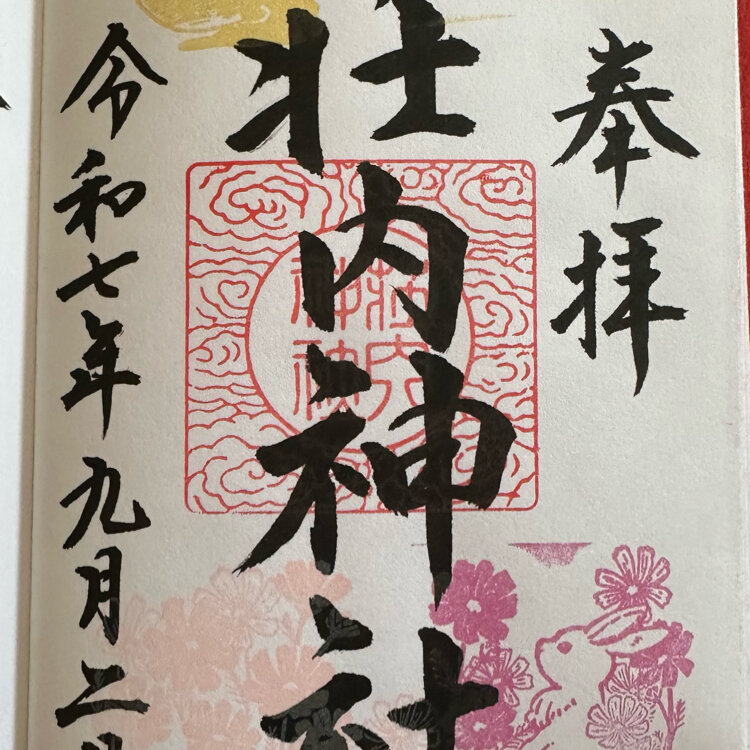 奉拝
荘内神社
荘内
神社
令和七年九月二